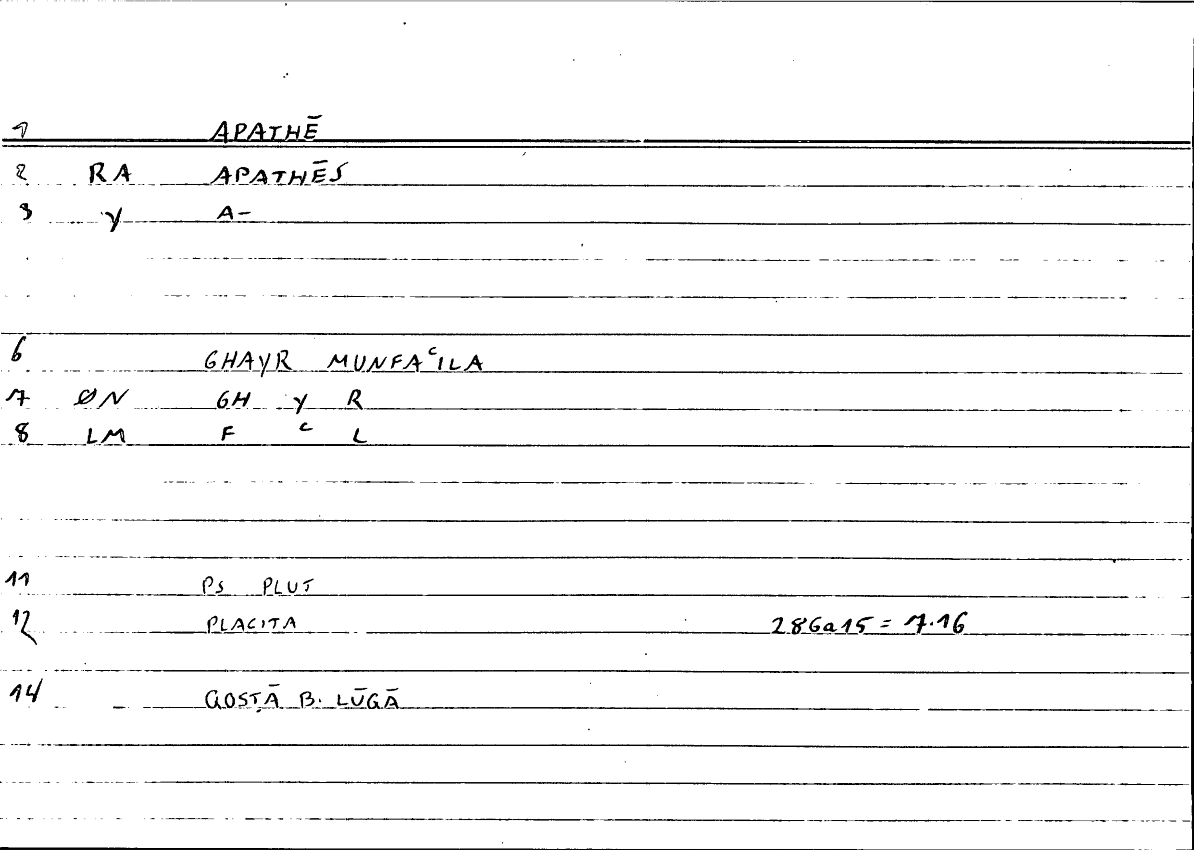 1 APATHĒ
2 RA APATHĒS
3 Y A-
6 GHAYR MUNFAᶜILA
7 ØN GH Y R
8 LM F ᶜ L
11 PS PLUT
12 PLACITA 286a15 = 7.16
14 QOSṬĀ B. LŪGĀ